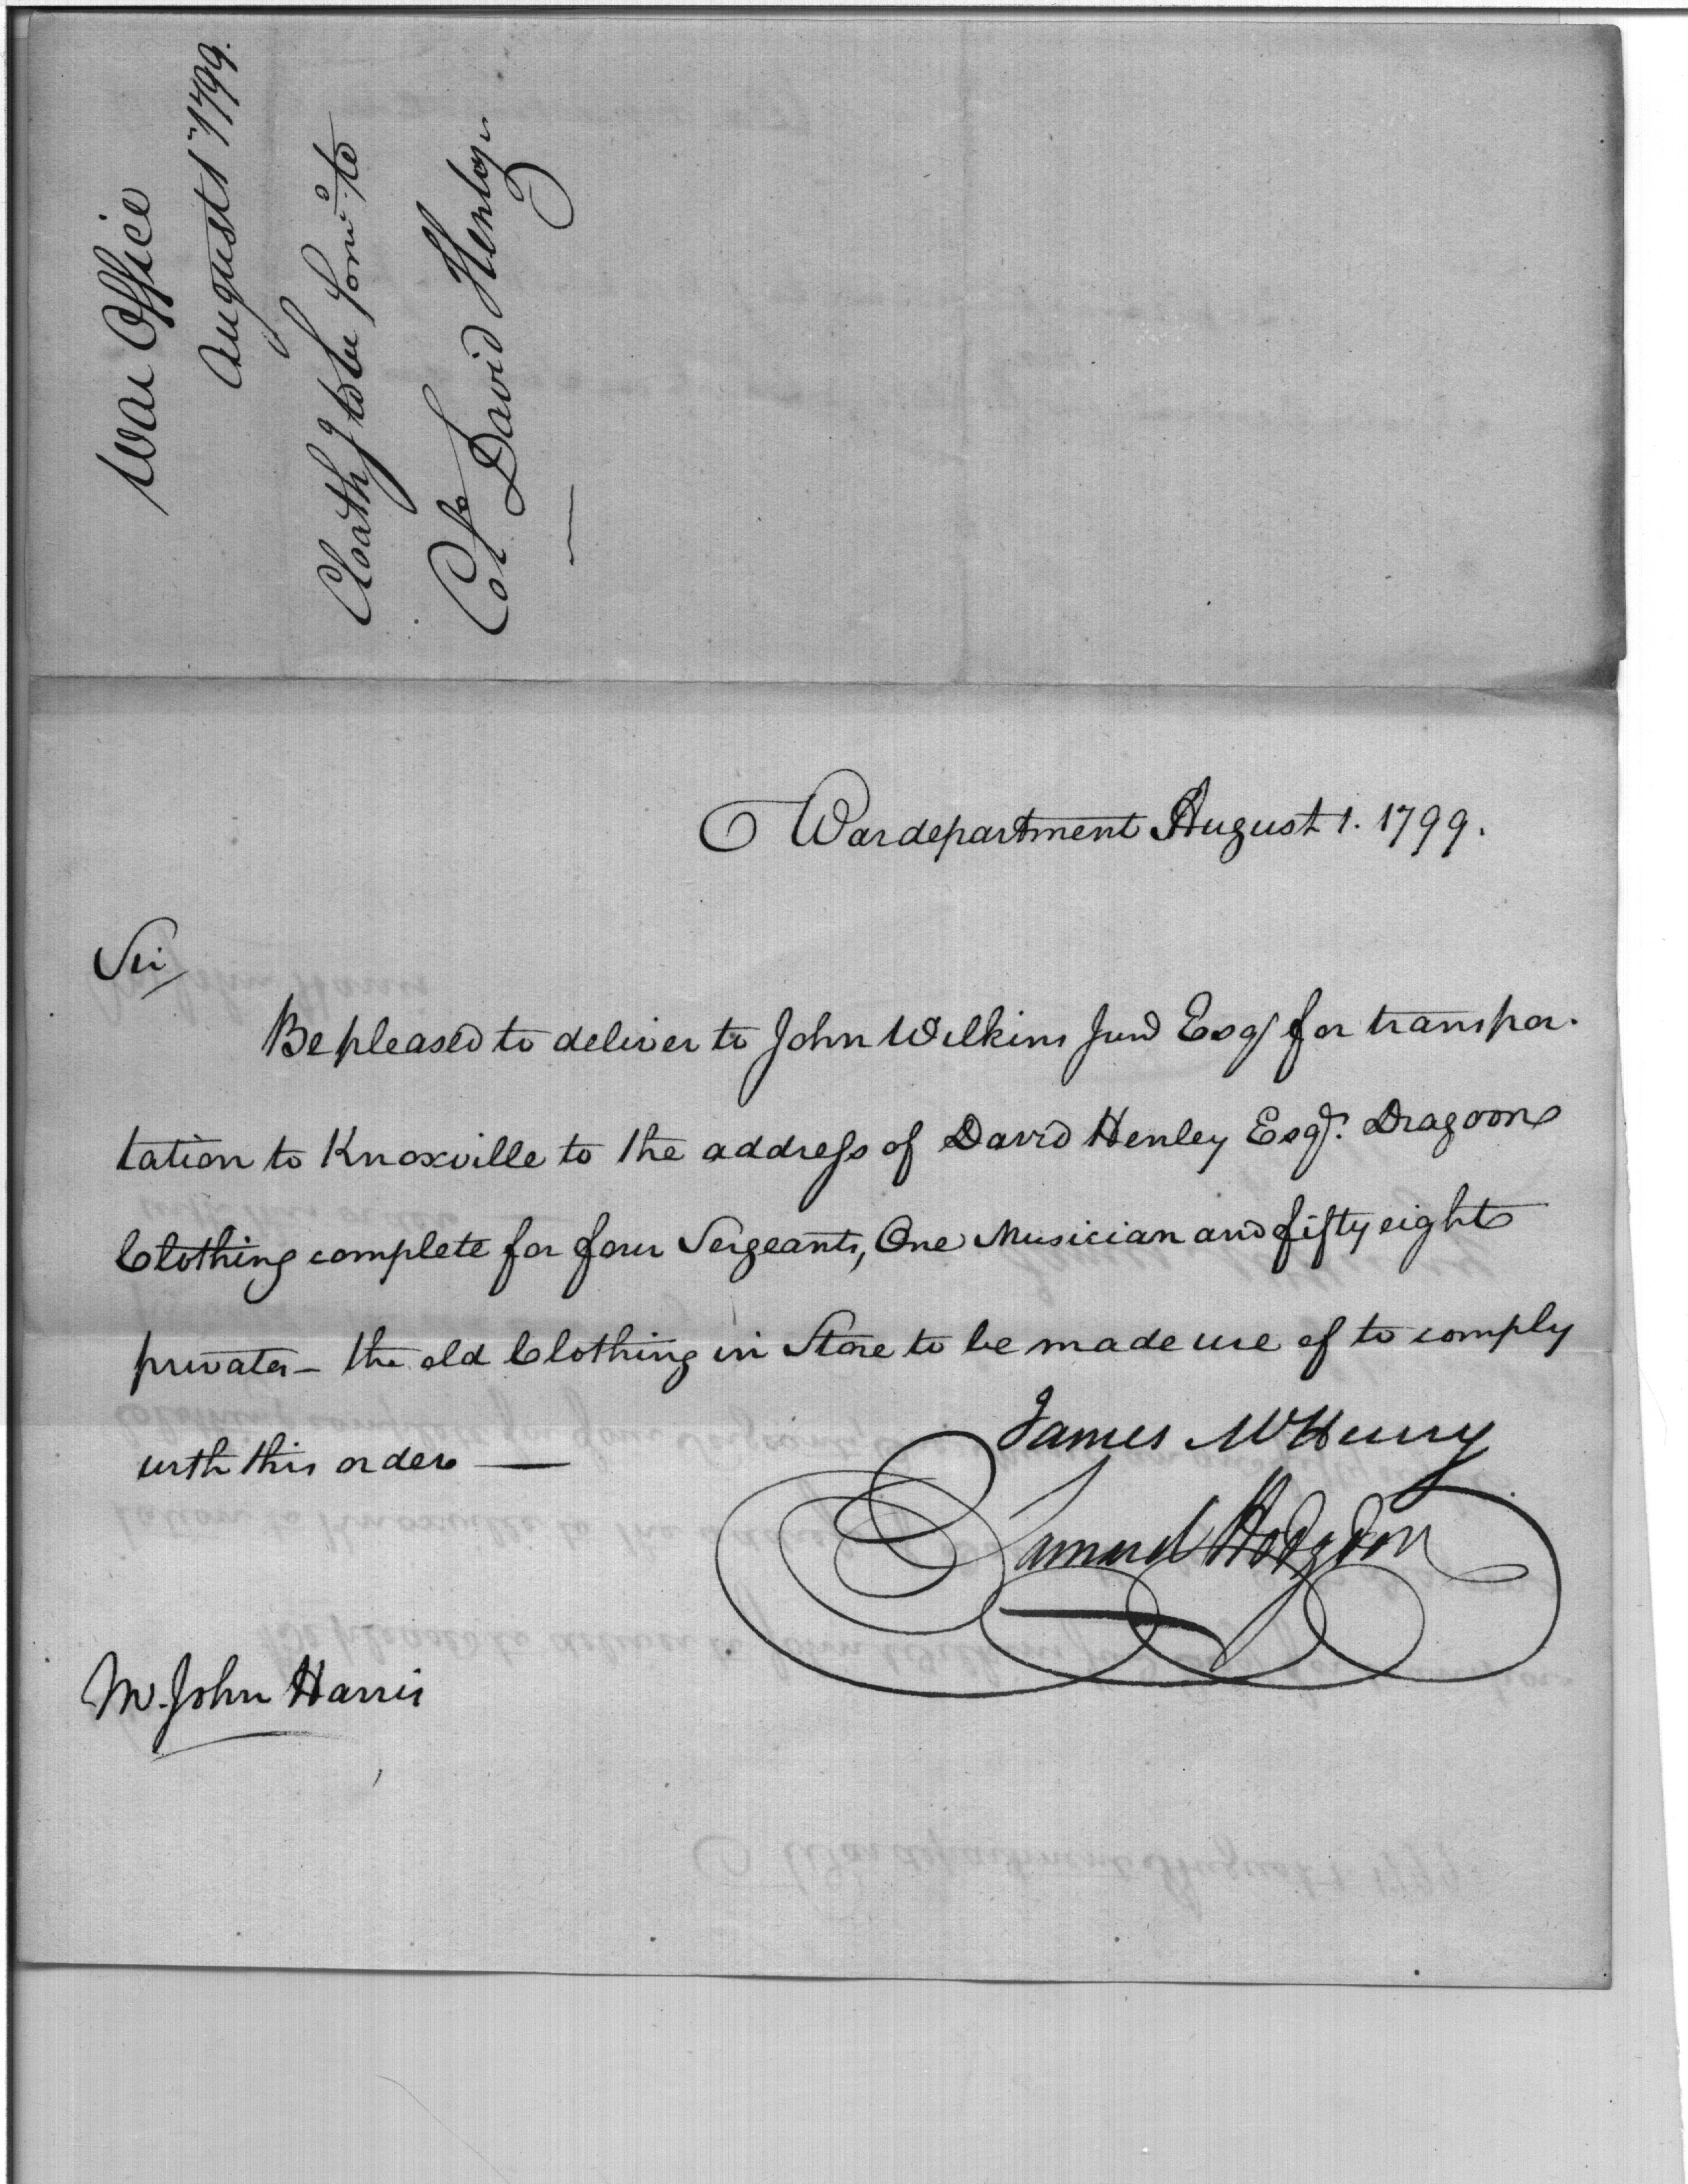 War Office
August 1st 1799.
Cloathg to be forwd to
Colo David Henley
War department August 1. 1799.
Sir
Be pleased to deliver to John Wilkins Junr Esqr for transpor-
tation to Knoxville to the address of David Henley Esqr. Dragoons
Clothing complete for four Sergeants, One Musician and fifty eight
privates – the old Clothing in Store to be made use of to comply
with this order —
James McHenry
Samuel Hodgdon
Mr. John Harris